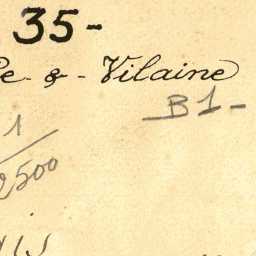 35-
& - Vilaine
B1-
1
2500